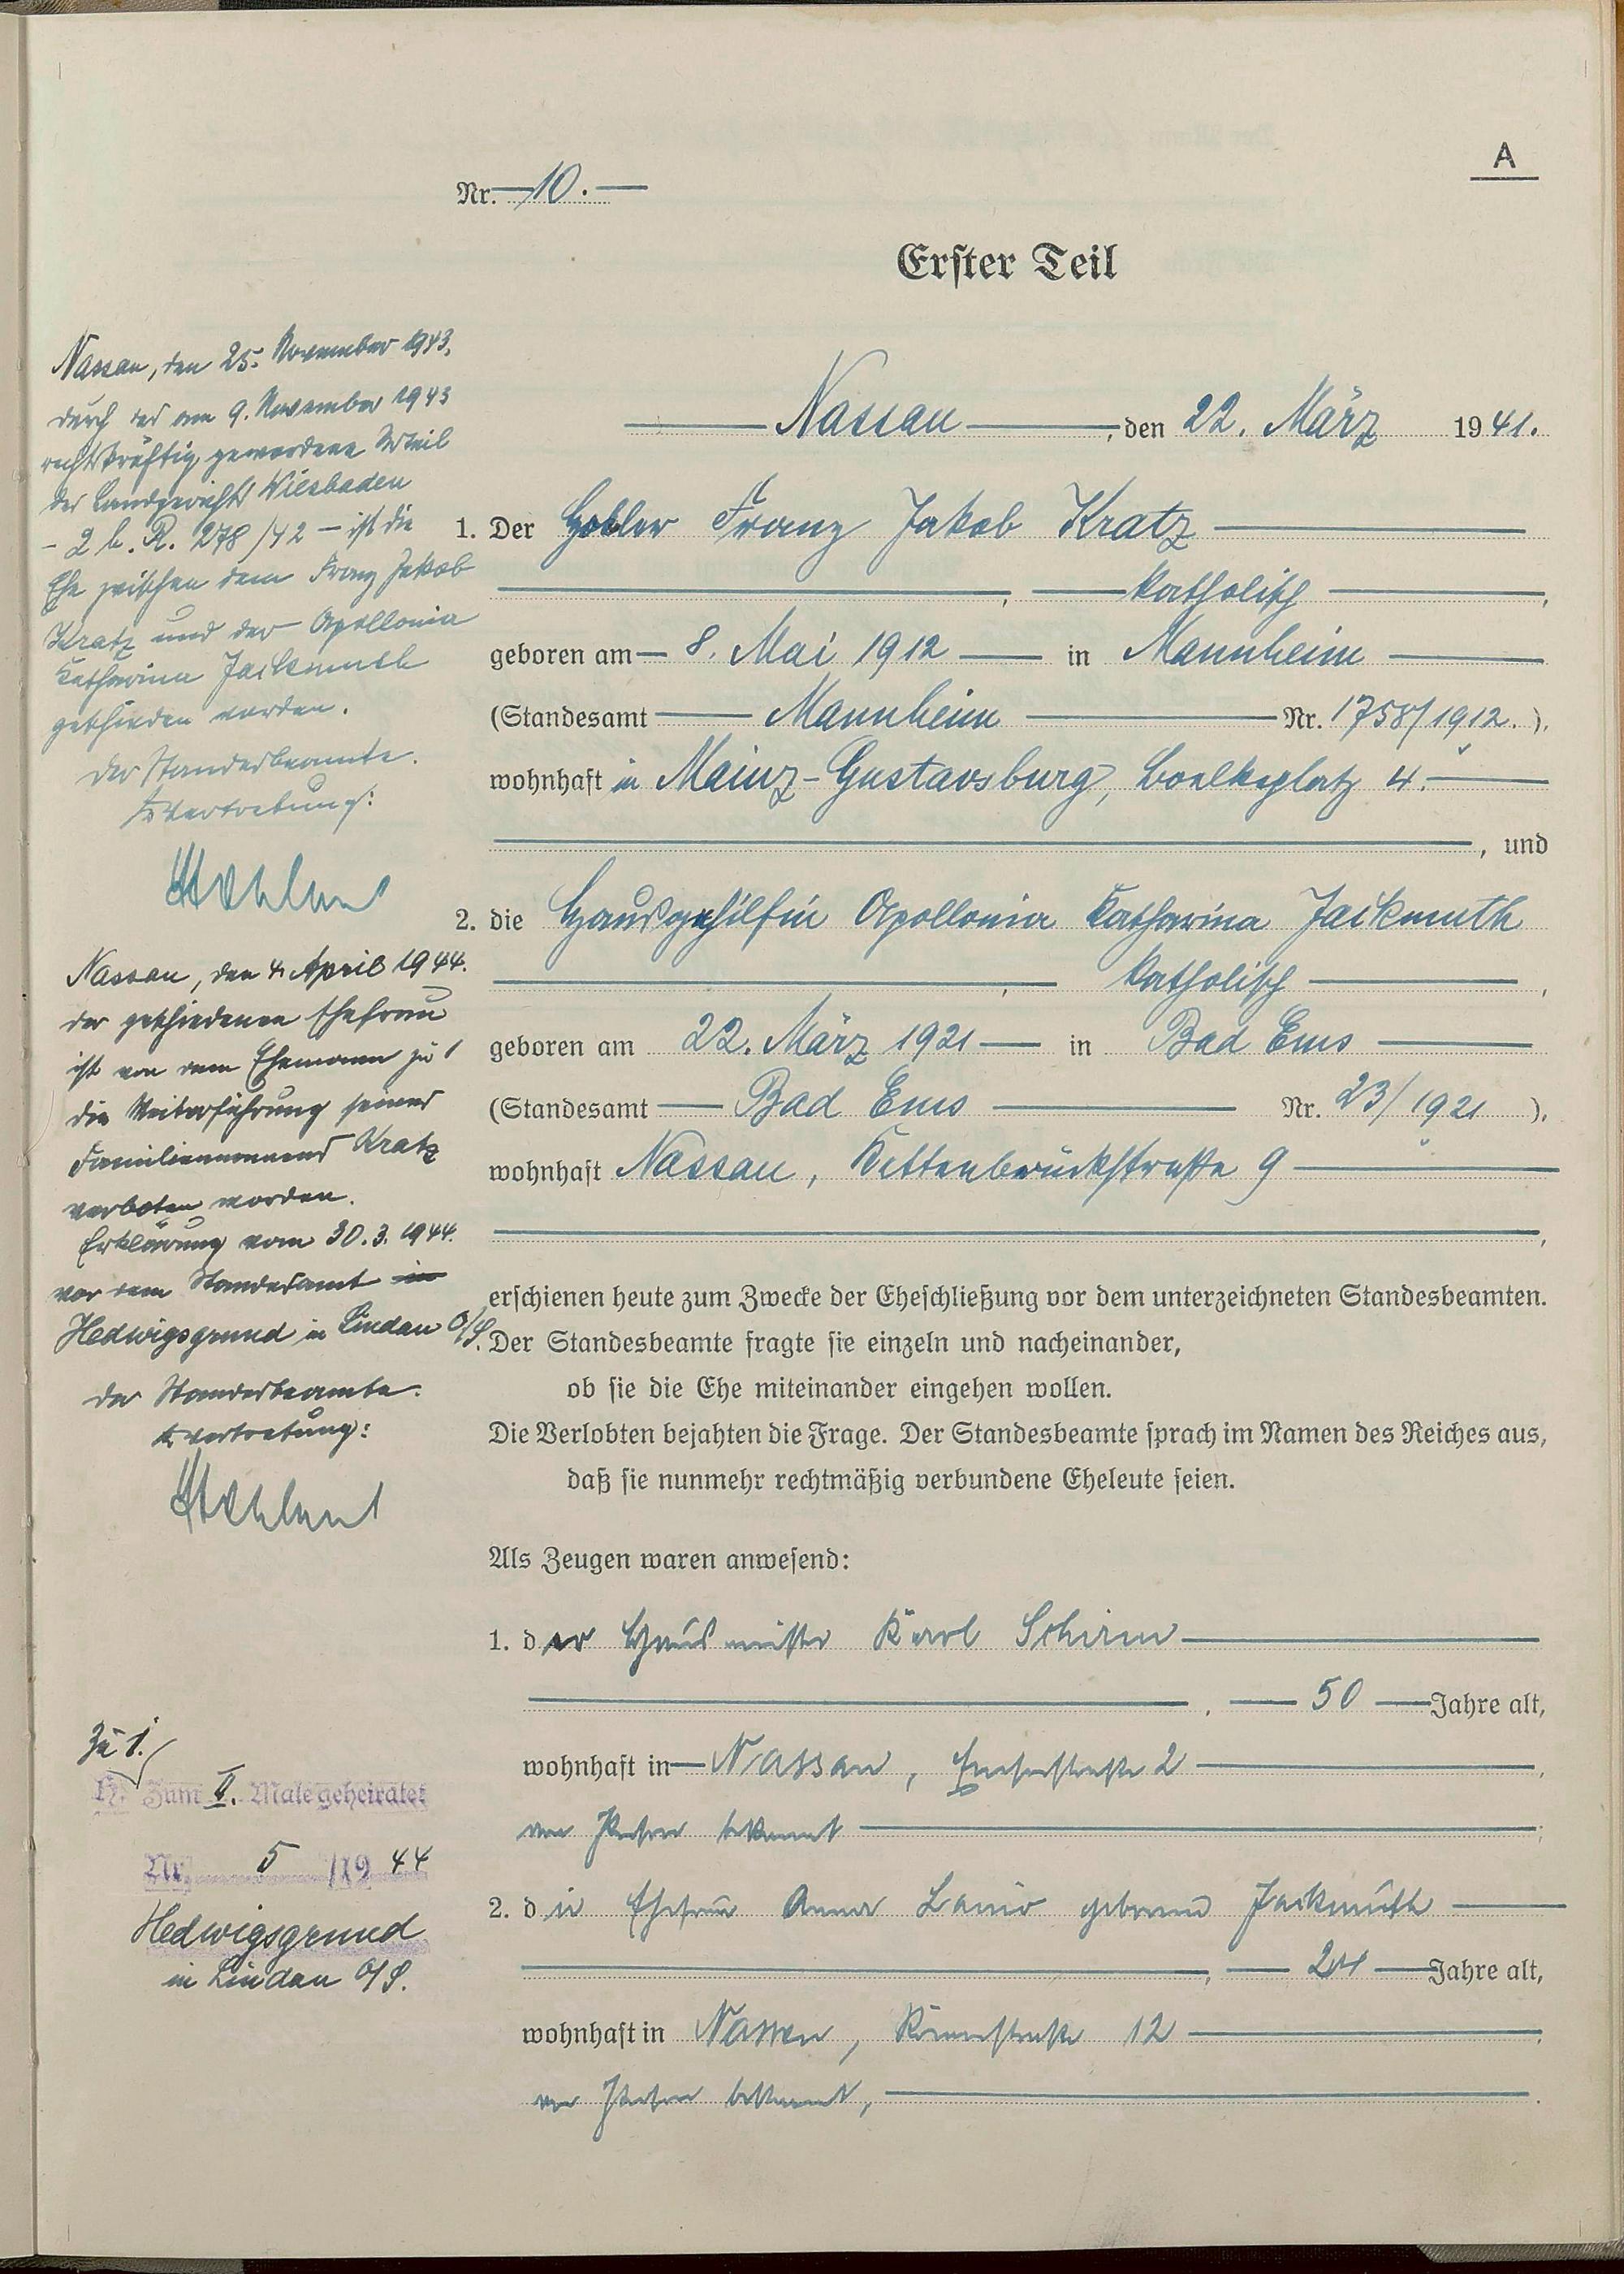 A
Nr. 10.
Erster Teil
Nassau, den 22. März 1941.
1. Der Hobler Franz Jakob Kratz
, katholisch,
geboren am 8. Mai 1912 in Mannheim
(Standesamt Mannheim Nr. 1758/1912.),
wohnhaft in Mainz-Gustavsburg, Boelkeplatz 4.
, und
2. die Hausgehilfin Apollonia Katharina Jackmuth
, katholisch,
geboren am 22. März 1921 in Bad Ems
(Standesamt Bad Ems Nr. 23/1921),
wohnhaft Nassau, Kettenbrückstraße 9
,
erschienen heute zum Zwecke der Eheschließung vor dem unterzeichneten Standesbeamten.
Der Standesbeamte fragte sie einzeln und nacheinander,
ob sie die Ehe miteinander eingehen wollen.
Die Verlobten bejahten die Frage. Der Standesbeamte sprach im Namen des Reiches aus,
daß sie nunmehr rechtmäßig verbundene Eheleute seien.
Als Zeugen waren anwesend:
1. der Hausmeister Karl Schirm
, 50 Jahre alt,
wohnhaft in Nassau, Emserstraße 2,
von Person bekannt;
2. die Ehefrau Anna geborene Jackmuth
, Jahre alt,
wohnhaft in Nassau, 12,
von Person bekannt,.
Nassau, den 25. November 1943.
Durch das am 9. November 1943
rechtskräftig gewordene Urteil
des Landgerichts Wiesbaden
- 2 b. R. 278/42 - ist die
Ehe zwischen dem Franz Jakob
Kratz und der Apollonia
Katharina Jackmuth
geschieden worden.
Der Standesbeamte.
In Vertretung:
Nassau, den 4. April 1944.
Der geschiedenen Ehefrau
ist von dem Ehemann zu 1
die Weiterführung seines
Familiennamens Kratz
verboten worden.
Erklärung vom 30.3.1944.
vor dem Standesamt in
Hedwigsgrund in Lindau O/S.
Der Standesbeamte.
In Vertretung:
Zu 1.
Zum II. Male geheiratet
Nr. 5 /1944
Hedwigsgrund
in Lindau O/S.